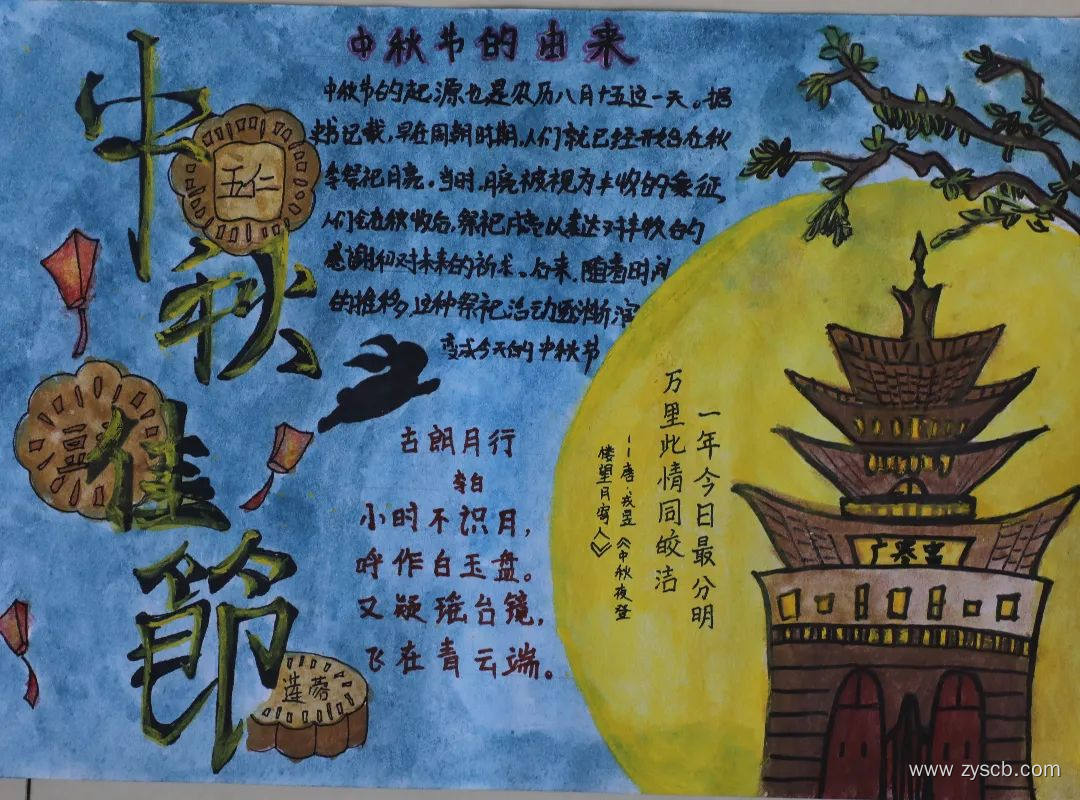 中秋佳節
五仁
莲蓉
中秋节的由来
中秋节的起源也是农历八月十五这一天。据
史书记载,早在周朝时期,人们就已经开始在秋
季祭祀月亮。当时,月亮被视为丰收的象征,
人们会在秋收后,祭祀月亮以表达对丰收的
感谢和对未来的祈求。后来,随着时间
的推移,这种祭祀活动逐渐演
变成今天的中秋节
古朗月行
李白
小时不识月,
呼作白玉盘。
又疑瑶台镜,
飞在青云端。
一年今日最分明
万里此情同皎洁
--唐·戎昱《中秋夜登
楼望月寄人》
广寒宫
www.zyscb.com